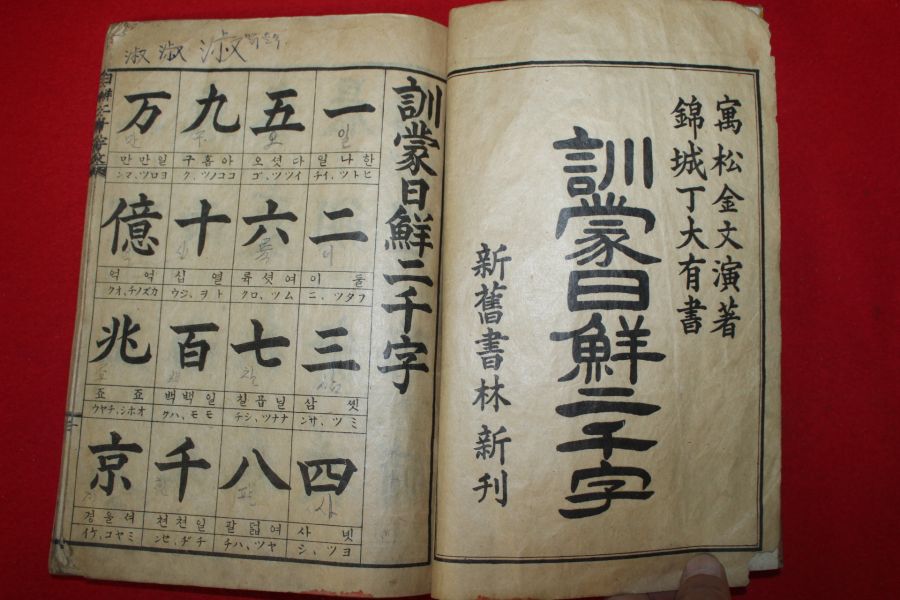 寓松金文演著
錦城丁大有書
訓蒙日鮮二千字
新舊書林新刊
淑 淑 淑
訓蒙日鮮二千字
一
한나 일
ヒトツ、イチ
二
둘 이
フタツ、ニ
三
셋 삼
ミツ、サン
四
넷 사
ヨツ、シ
五
다셧 오
イツツ、ゴ
六
여셧 류
ムツ、ロク
七
닐곱 칠
ナナツ、シチ
八
여덟 팔
ヤツ、ハチ
九
아홉 구
ココノツ、ク
十
열 십
トヲ、ジウ
百
일백 백
モモ、ハク
千
일쳔 쳔
チヂ、セン
万
일만 만
ヨロツ、マン
億
억 억
カズノチ、オク
兆
죠 죠
オホシ、チヤウ
京
셔울 경
ミヤコ、ケイ